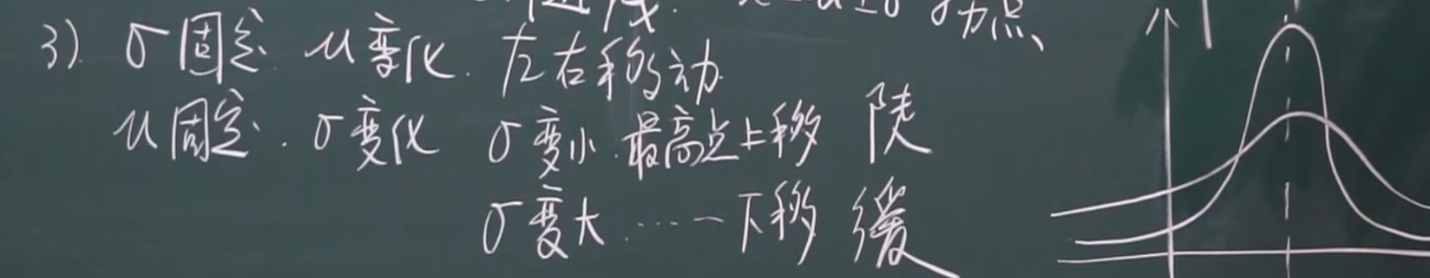 3) σ固定 μ变化. 左右移动
μ固定. σ变化 σ变小.最高点上移 陡
σ变大……下移 缓